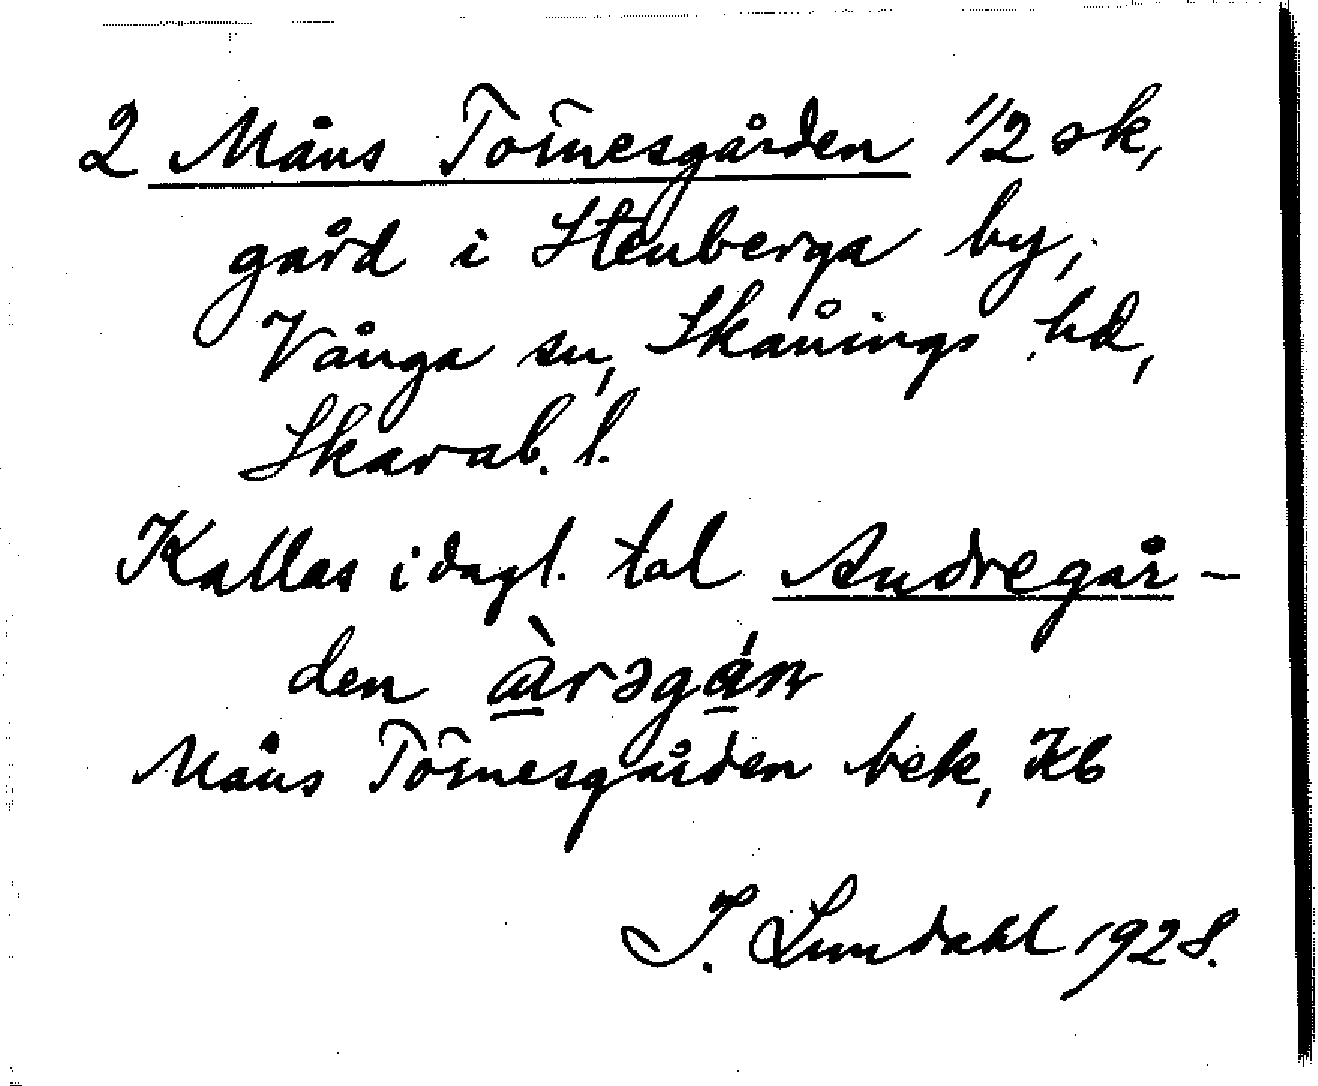 2 Måns Tõrnesgården 1/2 sk,
gård i Stenberga by,
Vånga sn, Skånings hd,
Skarab. l.
Kallas i dagl. tal Andregår-
den
Måns Tõrnesgården bek, Kb
I. Lundahl 1928.